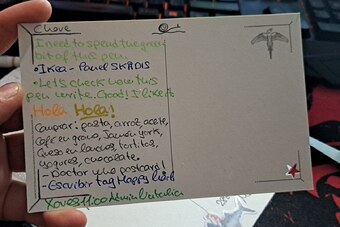 Chove
I need to spend the green
bit of this pen.
• Ikea - Panel SKÅDIS
• Let's check how this
pen write. Good! I like it
Hola Hola!
Comprar: pasta, arroz, aceite,
café en grano, Jamón york,
Queso en lonchas, tortitas,
yogures, chocolate.
- Doctor who postcard!
- Escribir tag Happy Mail
Xoves 11:00